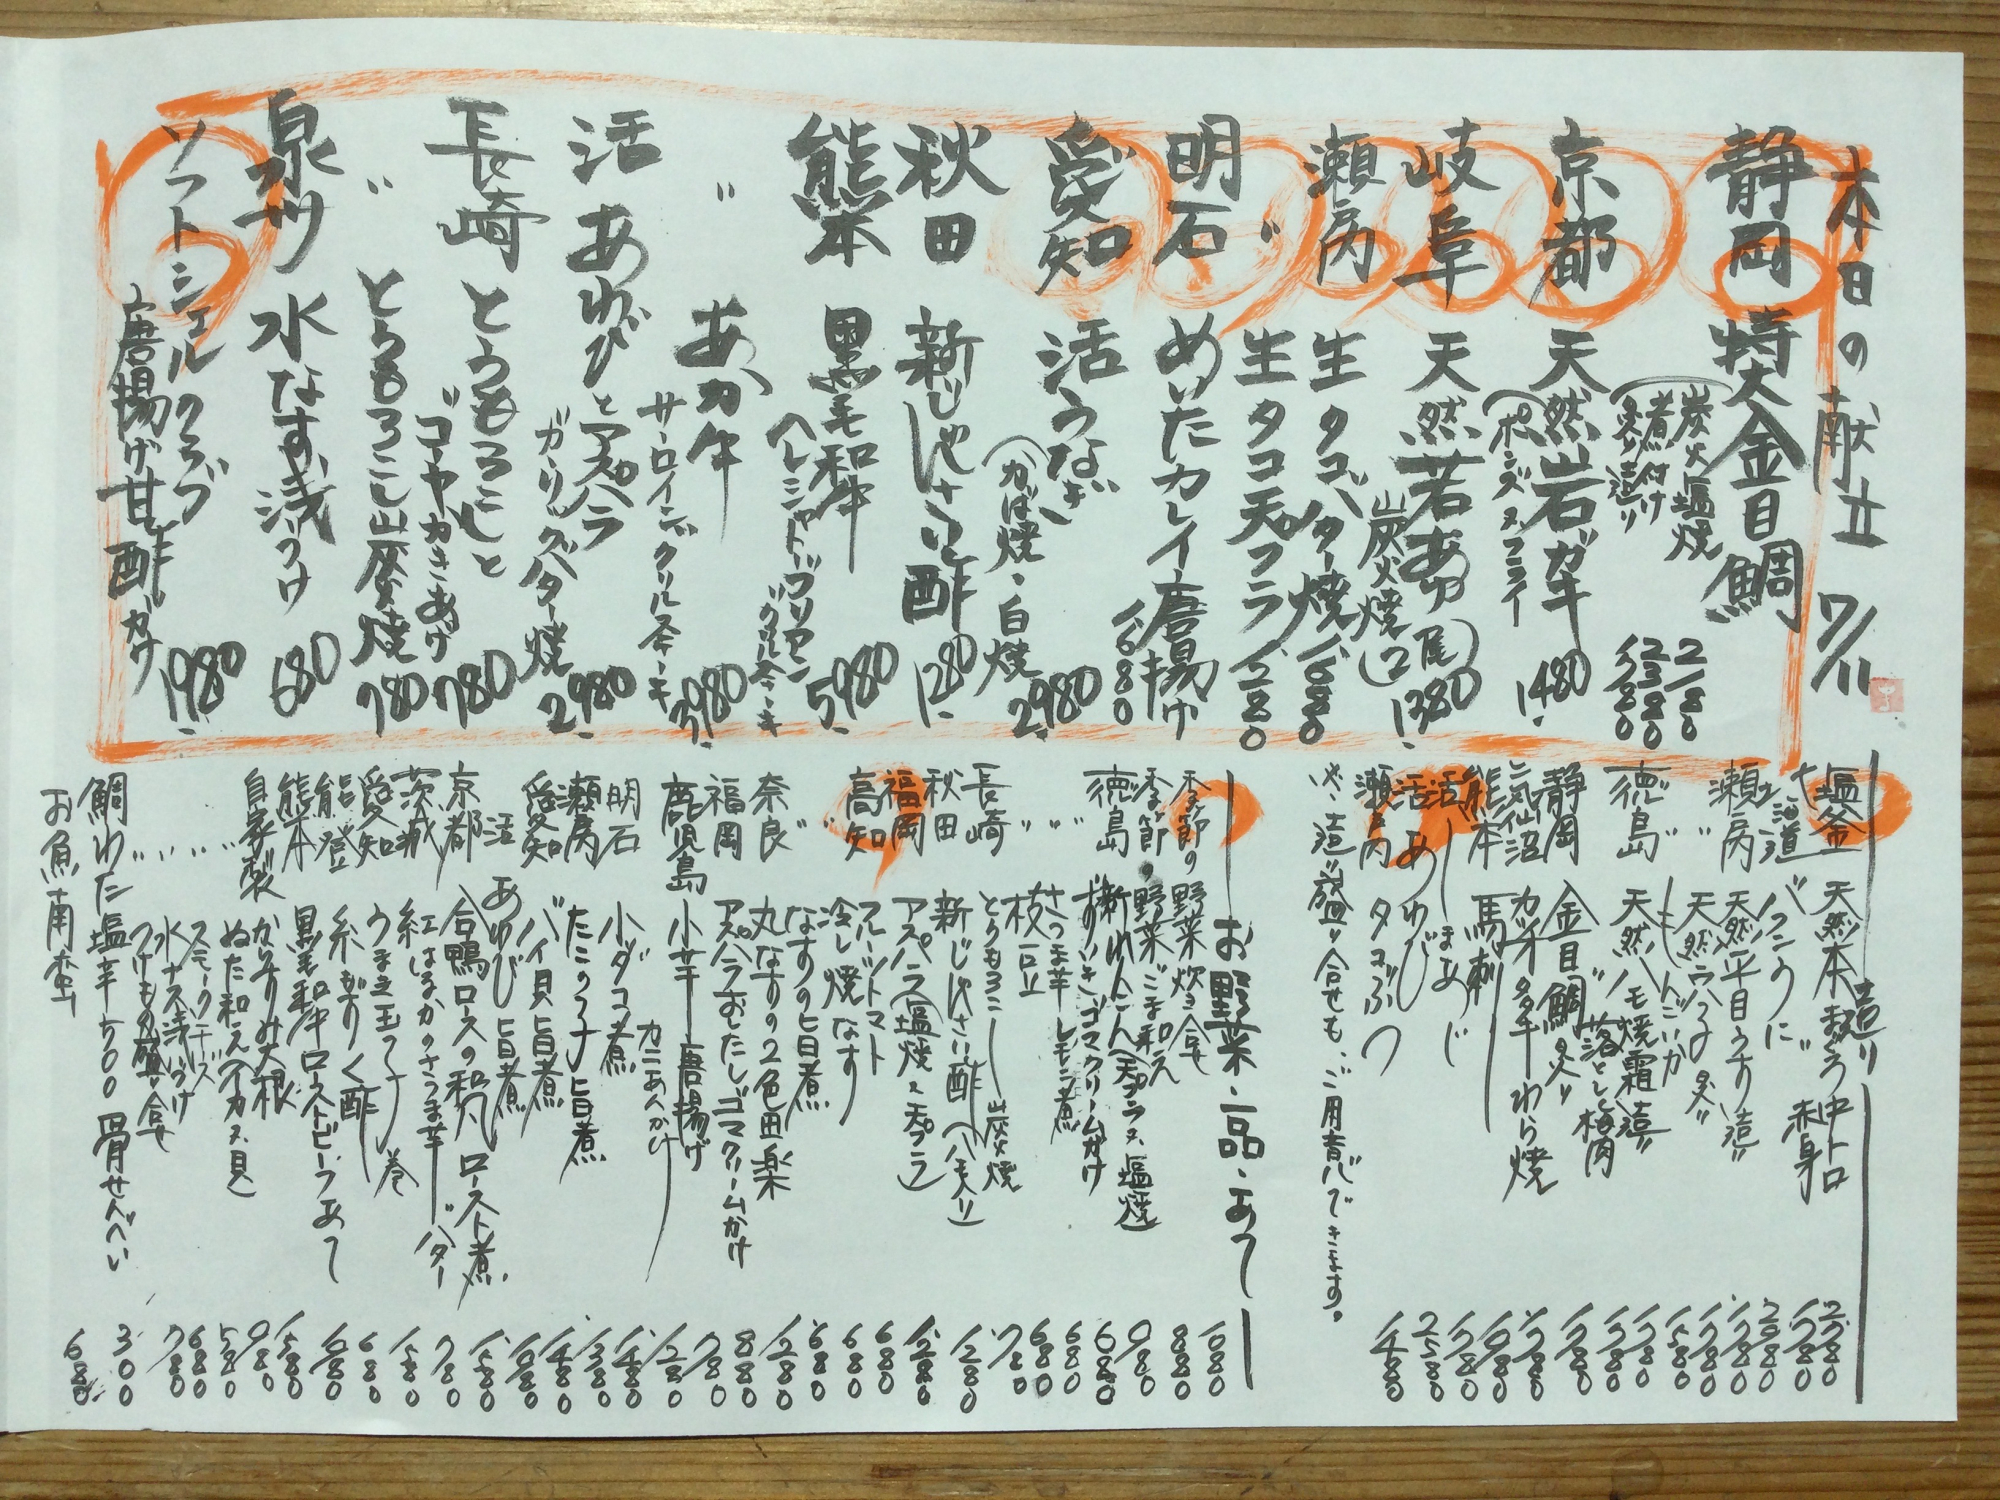 本日の献立 7/11
静岡 特大金目鯛
炭火塩焼 2180
煮付け 2380
炙り造り 1780
京都 天然岩ガキ 1480
(ポンズ又フライ
岐阜 天然若あゆ 1380
炭火焼(2尾)
瀬戸内 生タコバター焼 1680
〃 生タコ天プラ 1280
明石 めいたカレイ唐揚げ 1680
愛知 活うなぎ 2980
(かば焼・白焼
秋田 新じゅんさい酢 1280
熊本 黒毛和牛 5980
ヘレシャトーブリアン
グリルステーキ
〃 あか牛 3980
サーロイングリルステーキ
活あわびとアスパラ 2980
ガーリックバター焼
長崎 とうもろこしと 780
ゴーヤかきあげ
〃 とうもろこし炭火焼 780
泉州 水なす浅つけ 680
ソフトシェルクラブ 1980
唐揚げ甘酢がけ
造り
塩釜 天然本まぐろ中トロ 2780
赤身 1780
北海道 バフンうに 2980
瀬戸内 天然平目うす造り 1780
徳島 天然ハモ焼霜造り
落とし梅肉
静岡 金目鯛炙り 1780
気仙沼 カツオタタキわら焼
熊本 馬刺し
活 しまあじ 1780
活 あわび 2580
瀬戸内 タコぶつ 1480
造り盛り合せも、ご用意できます。
お野菜・一品・あて
季節の野菜炊き合せ
季節の野菜ごま和え 880
徳島 新れんこん(天プラ又塩焼)
〃 ずいきゴマクリームがけ 680
〃 さつま芋レモン煮 680
〃 枝豆
長崎 とうもろこし炭火焼
秋田 新じゅんさい酢(ハモ入り) 1280
福岡 アスパラ(塩焼又天プラ) 1280
高知 フルーツトマト 680
〃 冷し焼なす 680
〃 なすの旨煮 680
奈良 丸なすの2色田楽 1280
福岡 アスパラおしたしゴマクリームがけ 880
鹿児島 小芋唐揚げ 780
カニあんかけ 1280
明石 小ダコ煮 1480
瀬戸内 たこの子旨煮 1380
愛知 バイ貝旨煮 1480
活 あわび旨煮
京都 合鴨ロースの和風ロースト煮 1580
茨城 紅はるかのさつま芋バター 780
愛知 うまき玉子巻 1580
能登 糸もずく酢 680
熊本 黒毛和牛ローストビーフあて
自家製 からすみ大根 1580
〃 ぬた和えイカ又貝 980
〃 スモークチーズ 580
〃 水ナス浅づけ 680
〃 つけもの盛り合せ 780
鯛わた塩辛500 骨せんべい 300
お魚南蛮 680